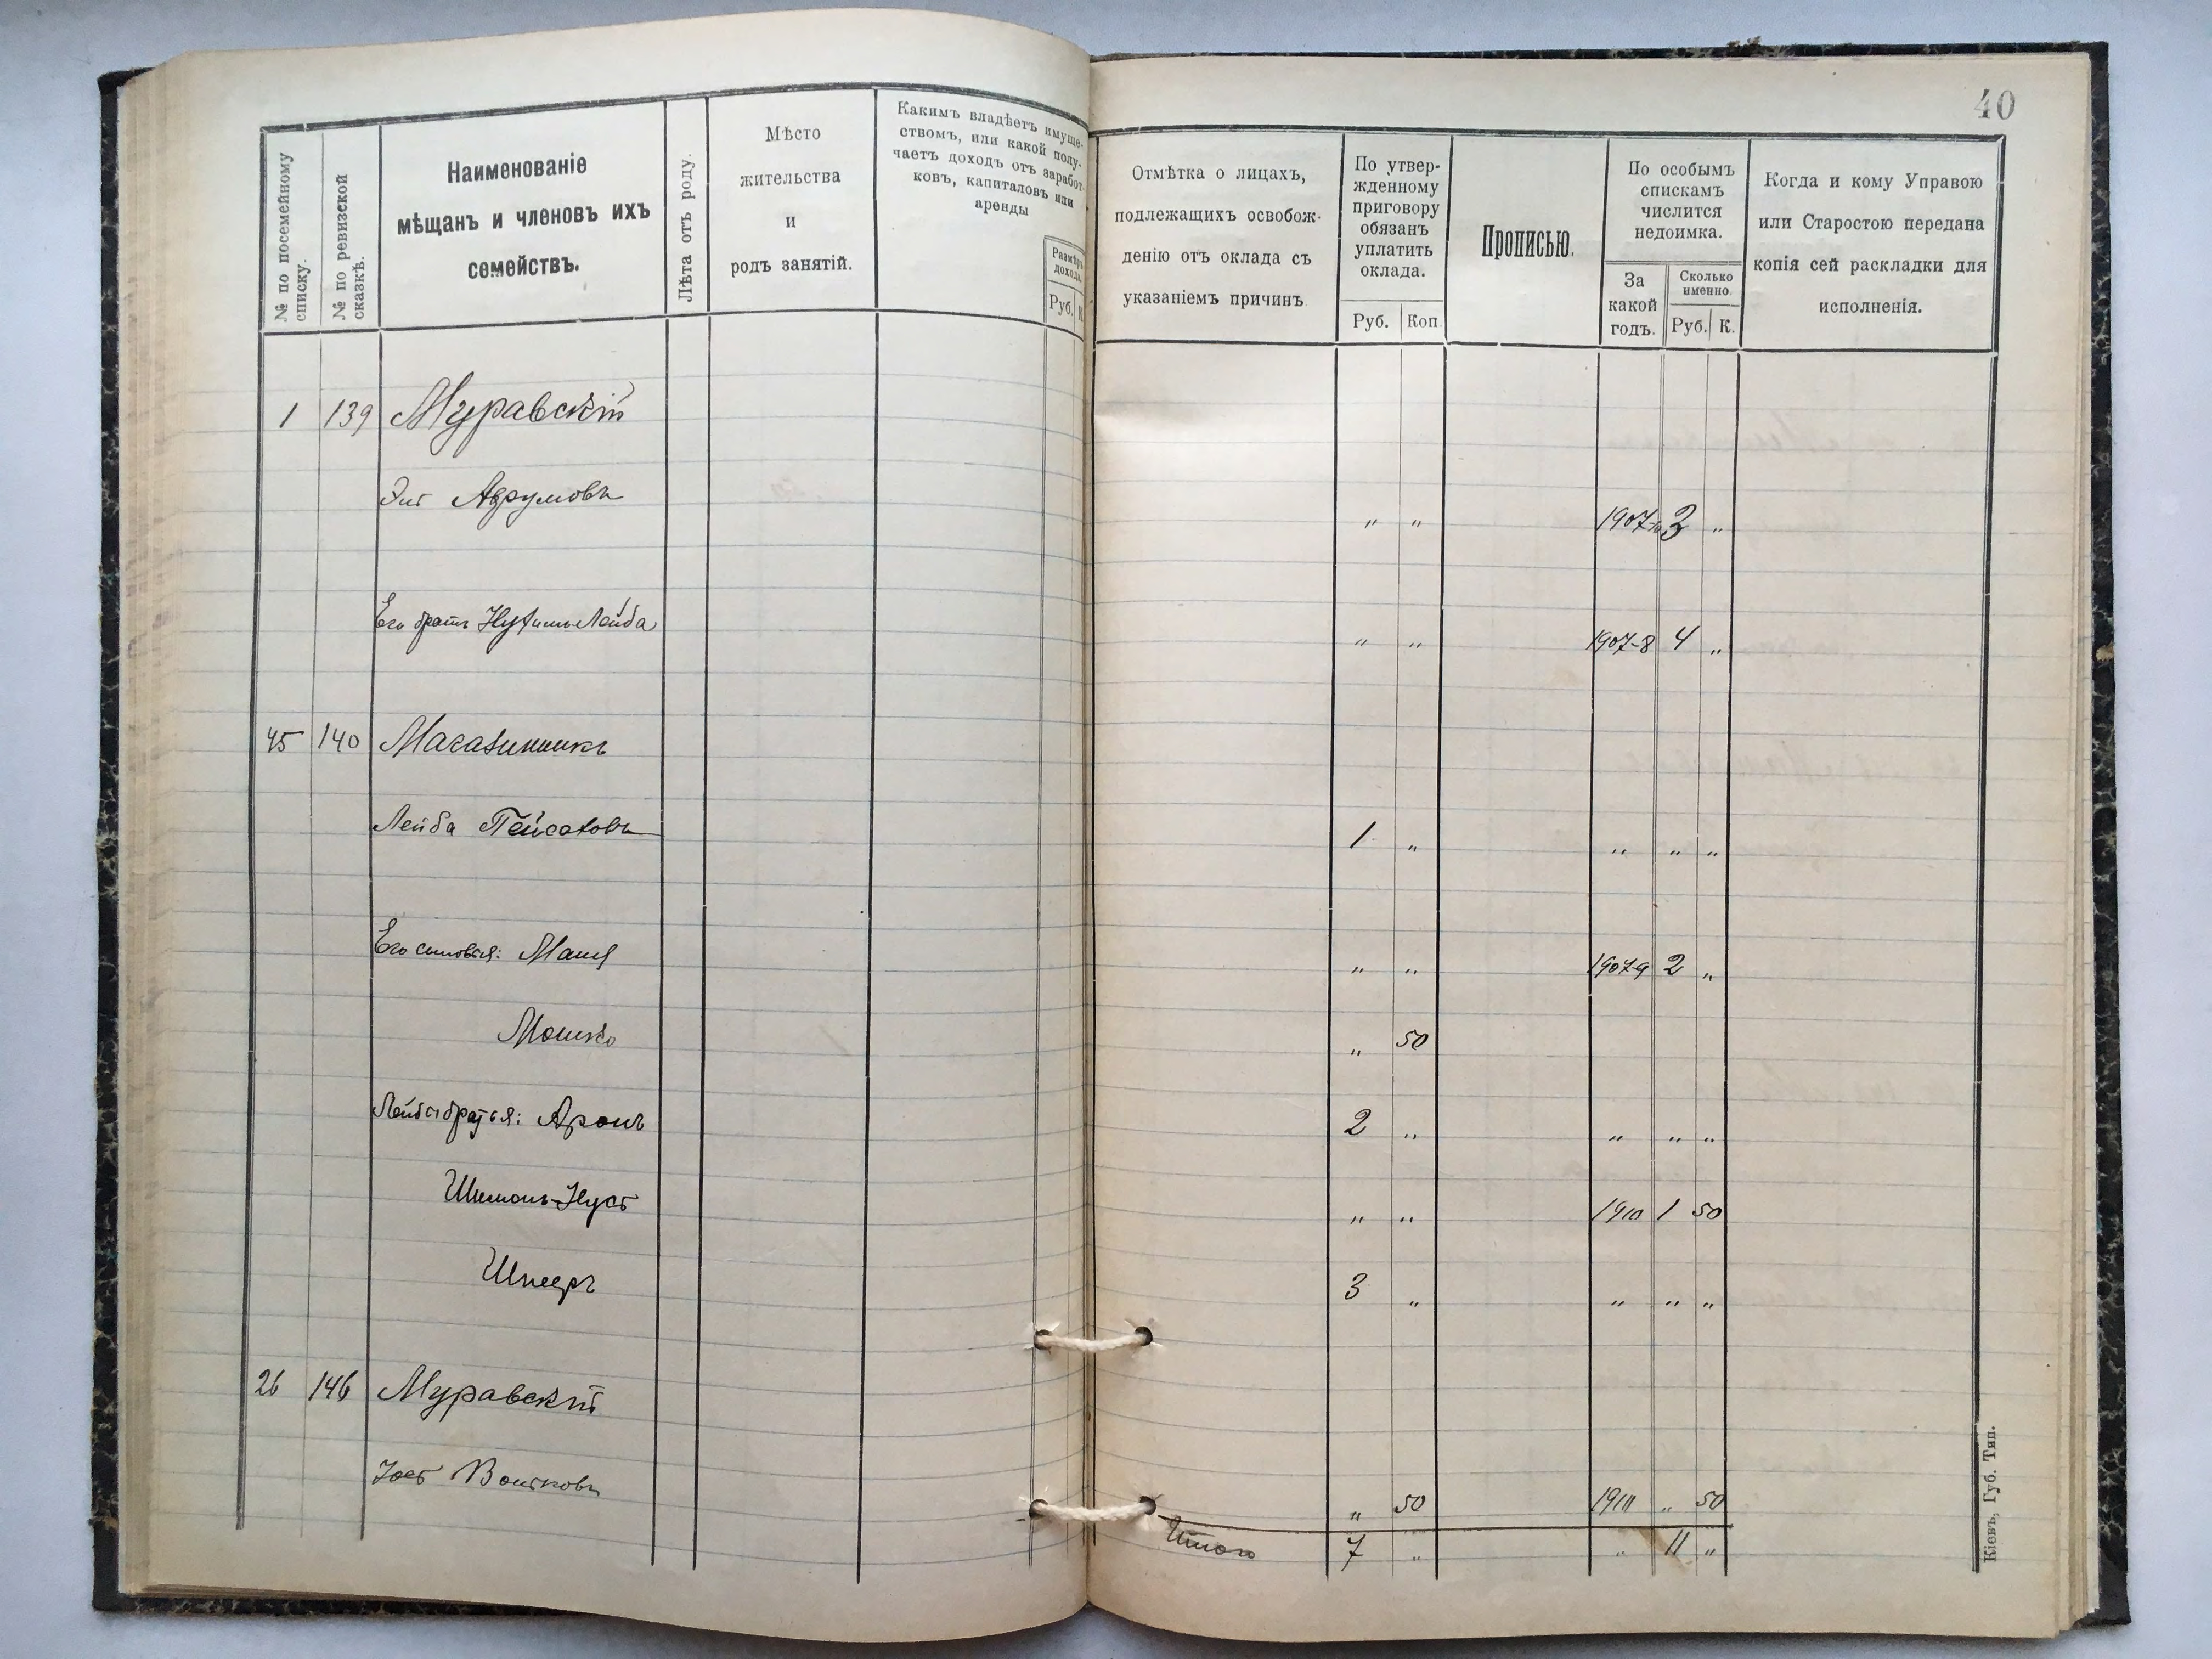 40
№ по посемейному
списку.
№ по ревизской
сказкѣ.
Наименованіе
мѣщанъ и членовъ ихъ
семействъ.
Лѣта отъ роду.
Мѣсто
жительства
и
родъ занятій.
Какимъ владѣетъ имуще-
ствомъ, или какой полу-
чаетъ доходъ отъ заработ-
ковъ, капиталовъ или
аренды
Размѣръ
дохода.
Руб. К.
Отмѣтка о лицахъ,
подлежащихъ освобож-
денію отъ оклада съ
указаніемъ причинъ
По утвер-
жденному
приговору
обязанъ
уплатить
оклада.
Руб. Коп.
Прописью.
По особымъ
спискамъ
числится
недоимка.
За
какой
годъ.
Сколько
именно.
Руб. К.
Когда и кому Управою
или Старостою передана
копія сей раскладки для
исполненія.
1 139 Муравскій
Аврумовъ " " 3 "
Его братъ Лейба " " 1907-8 4 "
45 140 Магазинникъ
Лейба Пейсаховъ 1 " " " "
Его сыновья: " " 1907-9 2 "
Мошко " 50
Лейбы братья: Аронъ 2 " " " "
Шимонъ-Нусъ " " 1910 1 50
3 " " " "
26 146 Муравскій
" 50 1911 " 50
Итого 7 " " 11 "
Кіевъ, Губ. Тип.